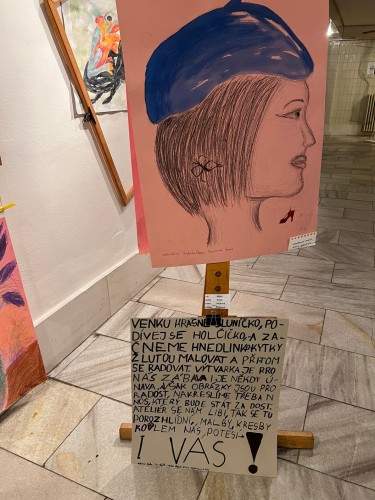 VENKU HRAJE SLUNÍČKO, PO-
DÍVEJ SE HOLČIČKO, A ZA-
ČNEME HNEDLINKO KYTKY
ŽLUTOU MALOVAT A PŘITOM
SE RADOVAT. VÝTVARKA JE PRO
NÁS ZÁBAVA I JE NĚKDY Ú-
NAVA AVŠAK OBRÁZKY JSOU PRO
RADOST, NAKRESLÍME TŘEBA N
NOS, KTERÝ BUDE STÁT ZA DOST.
ATELIÉR SE NÁM LÍBÍ, TAK SE TU
POROZHLÍDNI, MALBY, KRESBY
KOLEM NÁS, POTĚŠÍ
I VÁS!